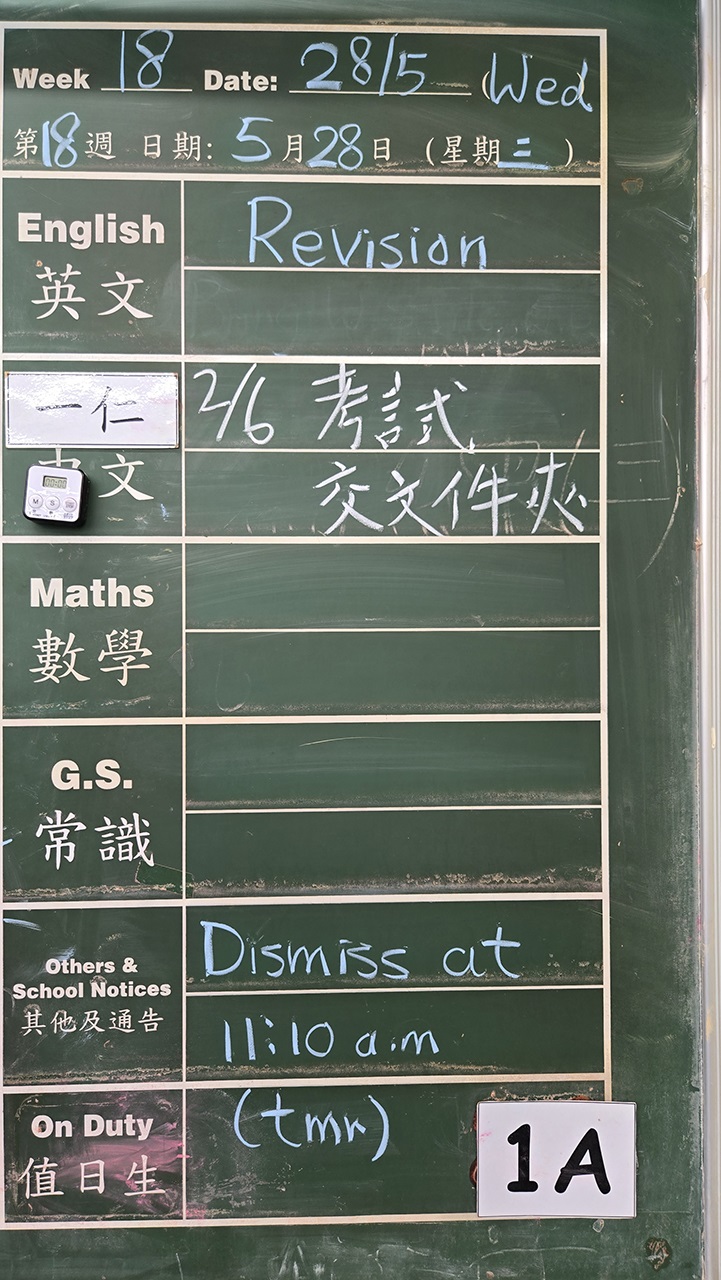 Week 18 Date: 28/5 (Wed)
第18週 日期: 5月28日 (星期三)
English Revision
英文
一仁 2/6 考試
中文 交文件夾
00:00
M S
Maths
數學
G.S.
常識
Others & Dismiss at
School Notices
其他及通告 11:10 a.m
On Duty (tmr)
值日生
1A